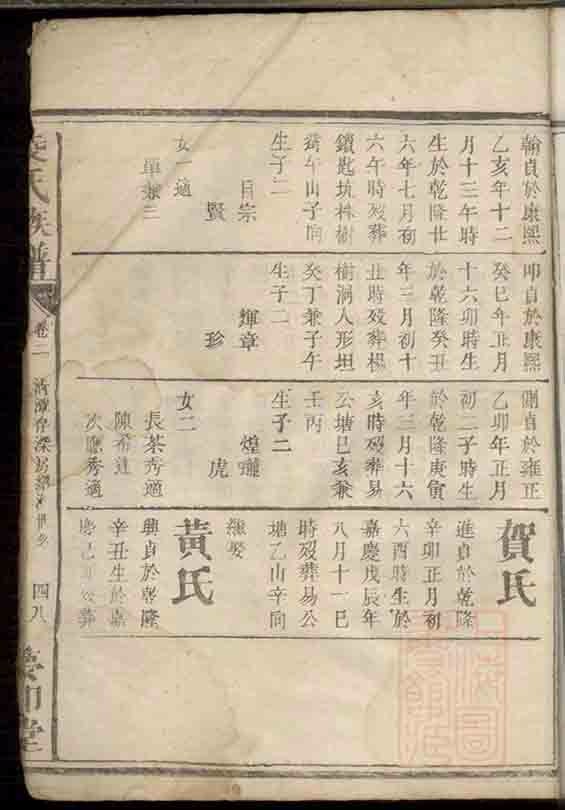 翰貞於康熙
乙亥年十二
月十三午時
生於乾隆廿
六年七月初
六午時歿葬
鎖匙坑株樹
窩午山子向
生子二
目宗
賢
女一適
單兼三
叩貞於康熙
癸巳年正月
十六卯時生
於乾隆癸丑
年三月初十
丑時歿葬楊
樹洞人形坦
癸丁兼子午
生子二
輝章
珍
側貞於雍正
乙卯年正月
初二子時生
於乾隆庚寅
年三月十六
亥時歿葬易
公塘巳亥兼
壬丙
生子二
煌
虎
女二
長茶秀適
陳希達
次應秀適
賀氏
進貞於乾隆
辛卯正月初
六酉時生於
嘉慶戊辰年
八月十一巳
時歿葬易公
塘乙山辛向
繼娶
黃氏
興貞於乾隆
辛丑生於嘉
慶己
氏族譜
卷二
四八